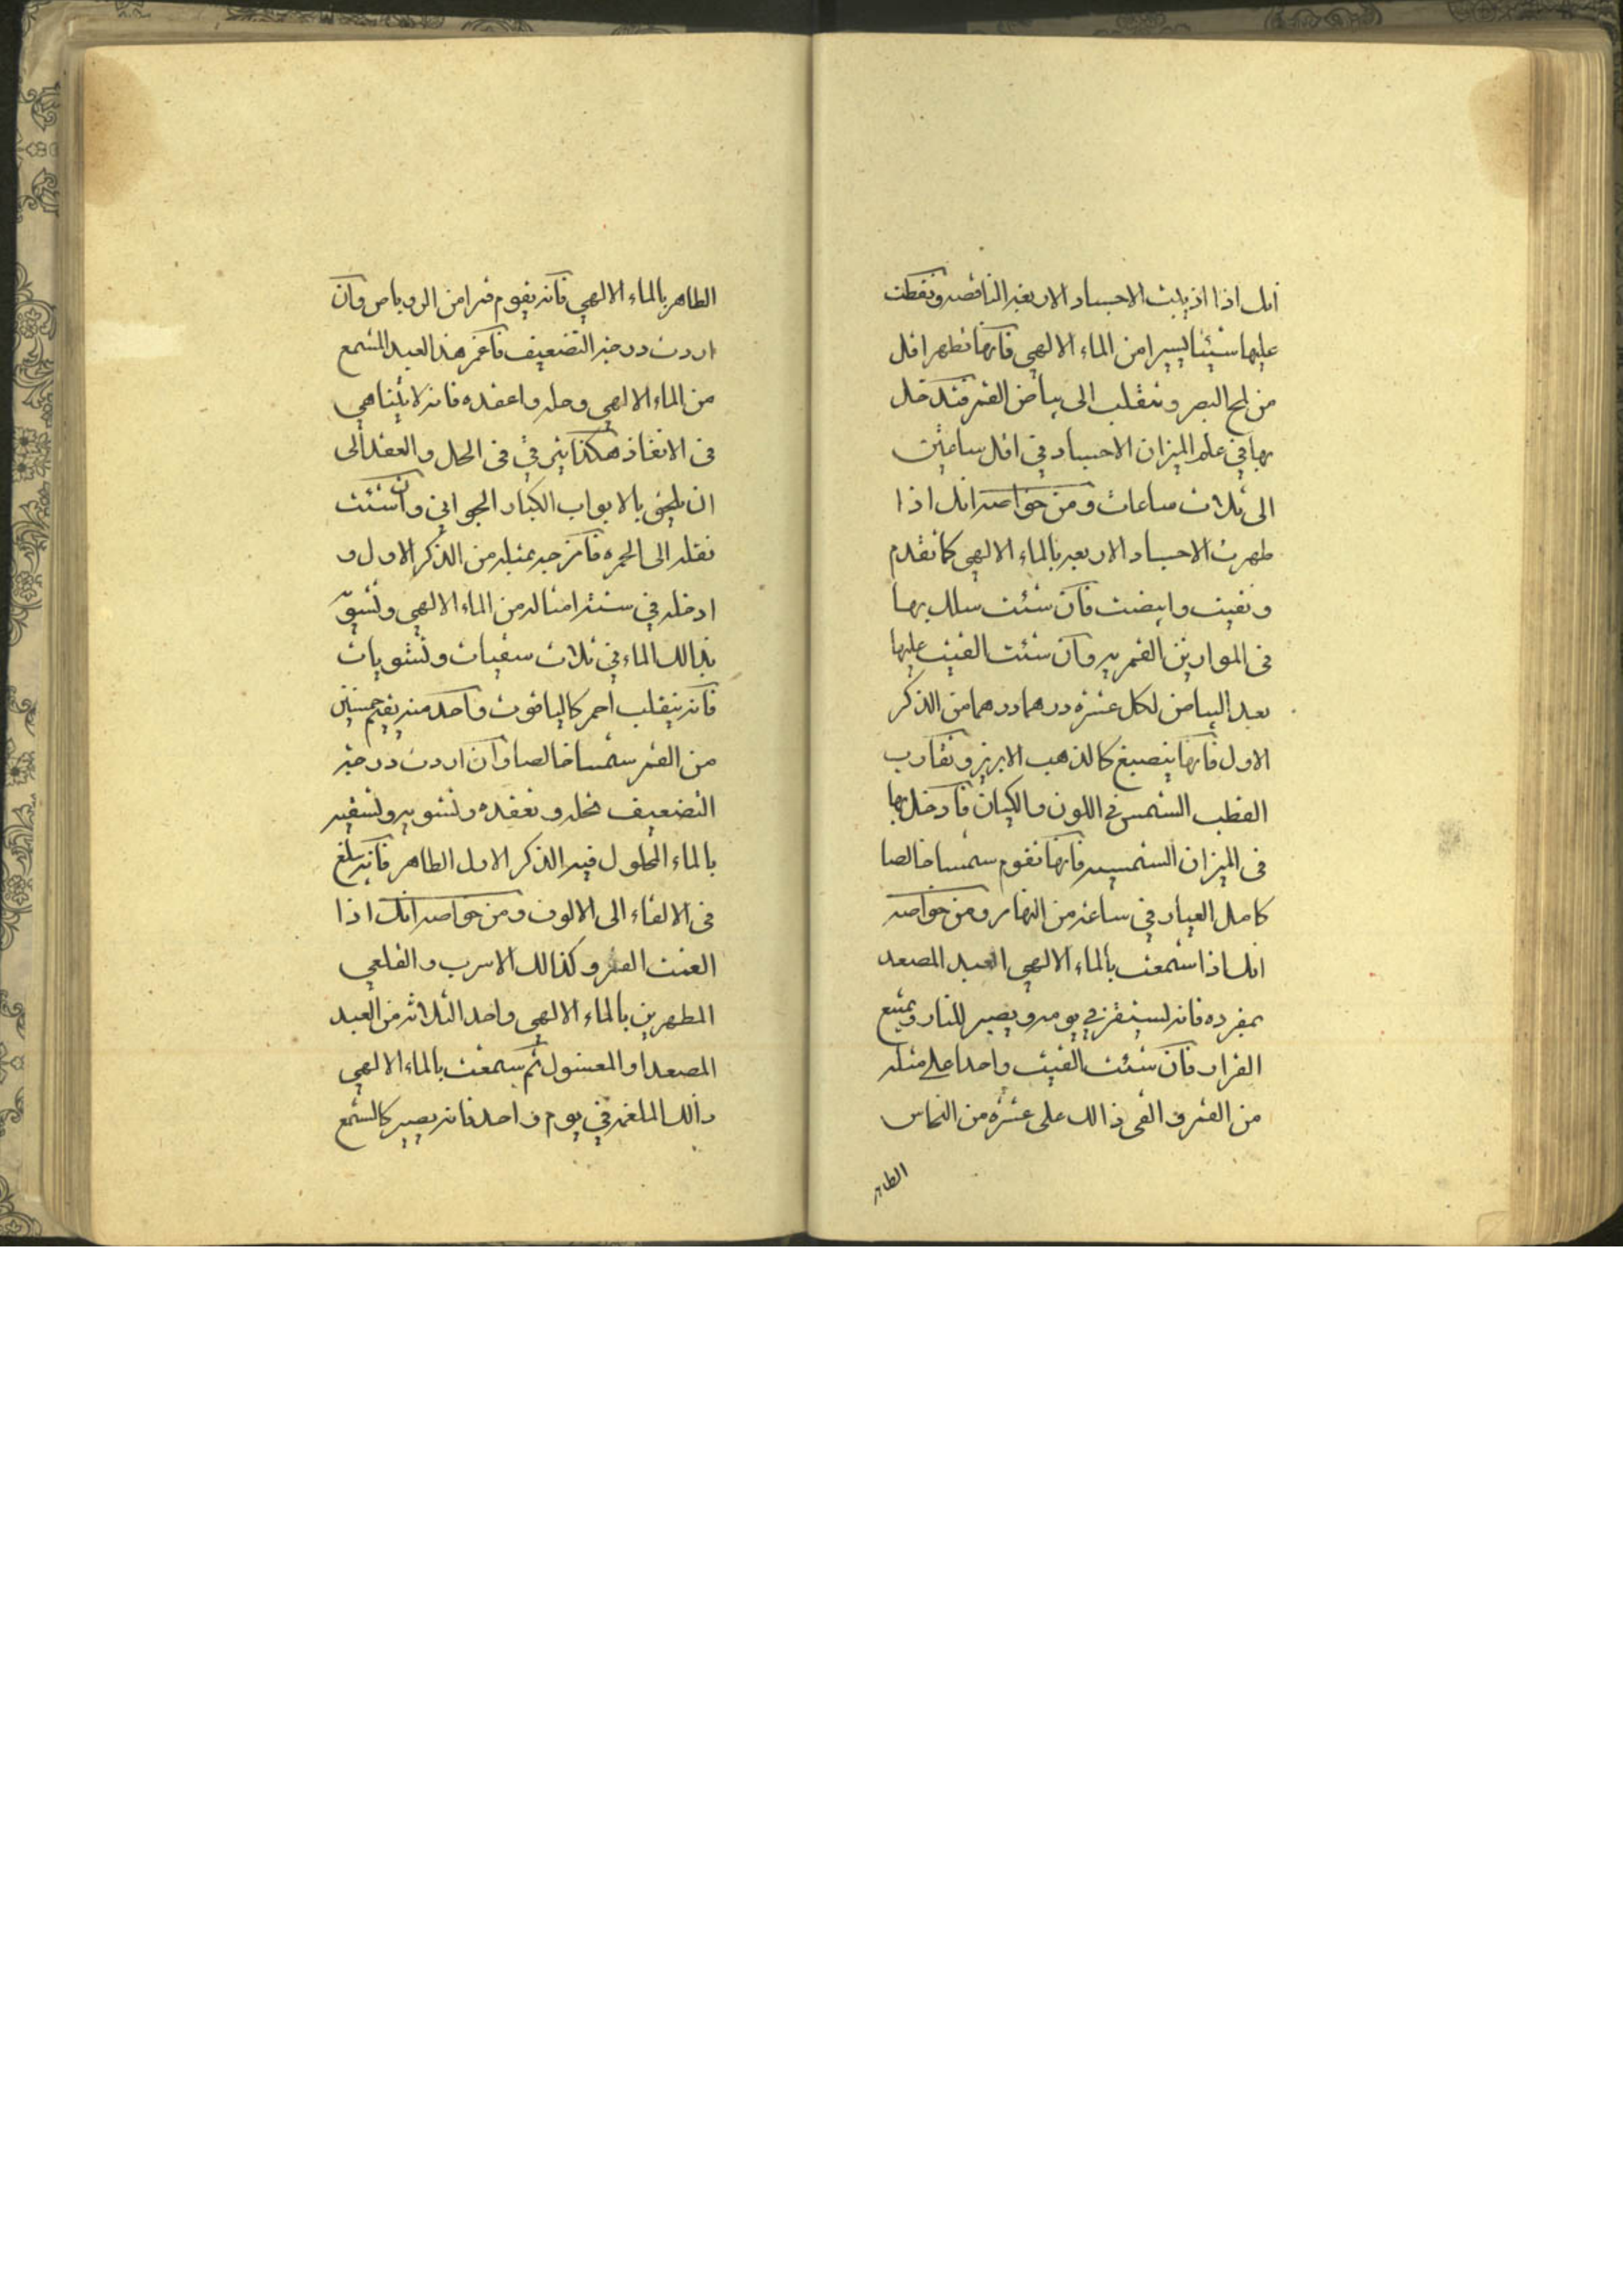 انك اذا اذيبت الاجساد الاربعة الناقصه ونقطت
عليها شيئا يسيرا من الماء الالهي فانها تطهر اقل
من لمح البصر وتنقلب الى بياض القمر فتدخل
بها في علم الميزان الاجساد في اقل ساعتين
الى ثلاث ساعات ومن خواصه انك اذا
طهرت الاجساد الاربعه بالماء الالهي كما تقدم
ونقيت وابيضت فان شئت سلك بها
في الموازين القمريه وان شئت القيت عليها
بعد البياض لكل عشره درهما درهما من الذكر
الاول فانها ينصبغ كالذهب الابريز وتقارب
القطب الشمس في اللون والكيان فادخل بها
في الميزان الشمسيه فانها تقوم شمسا خالصا
كامل العيار في ساعة من النهار ومن خواصه
انك اذا شمعت بالماء الالهي العبد المصعد
بمفرده فانه يستقر في يومه ويصير للنار ويمتنع
الفرار فان شئت القيت واحدا على مثله
من القمر والقى ذالك على عشره من النحاس
الطاهر
الطاهر بالماء الالهي فانه يقوم قمرا من الروباص وان
اردت درجة التضعيف فاغمر هذا العبد المشمع
من الماء الالهي وحله واعقده فانه لا يتناهي
في الانفاذ هكذا يترقي في الحل والعقد الى
ان يلحق بالابواب الكبار الجواني وان شئت
نقله الى الحمره فامزجه بمثله من الذكر الاول و
ادخله في ستة امثاله من الماء الالهي وتسق
بذالك الماء في ثلاث سقيات وتشويات
فانه ينقلب احمر كالياقوت واحد منه يقيم خمسين
من القمر شمسا خالصا وان اردت درجة
التضعيف نحله وتعقده وتشويه وتسقيه
بالماء المحلول فيه الذكر الاول الطاهر فانه يبلغ
في الالقاء الى الالوف ومن خواصه انك اذا
القمر وكذالك الاسرب والقلعي
المطهرين بالماء الالهي واحد الثلاثة من العبد
المصعد او المغسول ثم شمعت بالماء الالهي
ذالك الملغمة في يوم واحد فانه يصير كالشمع